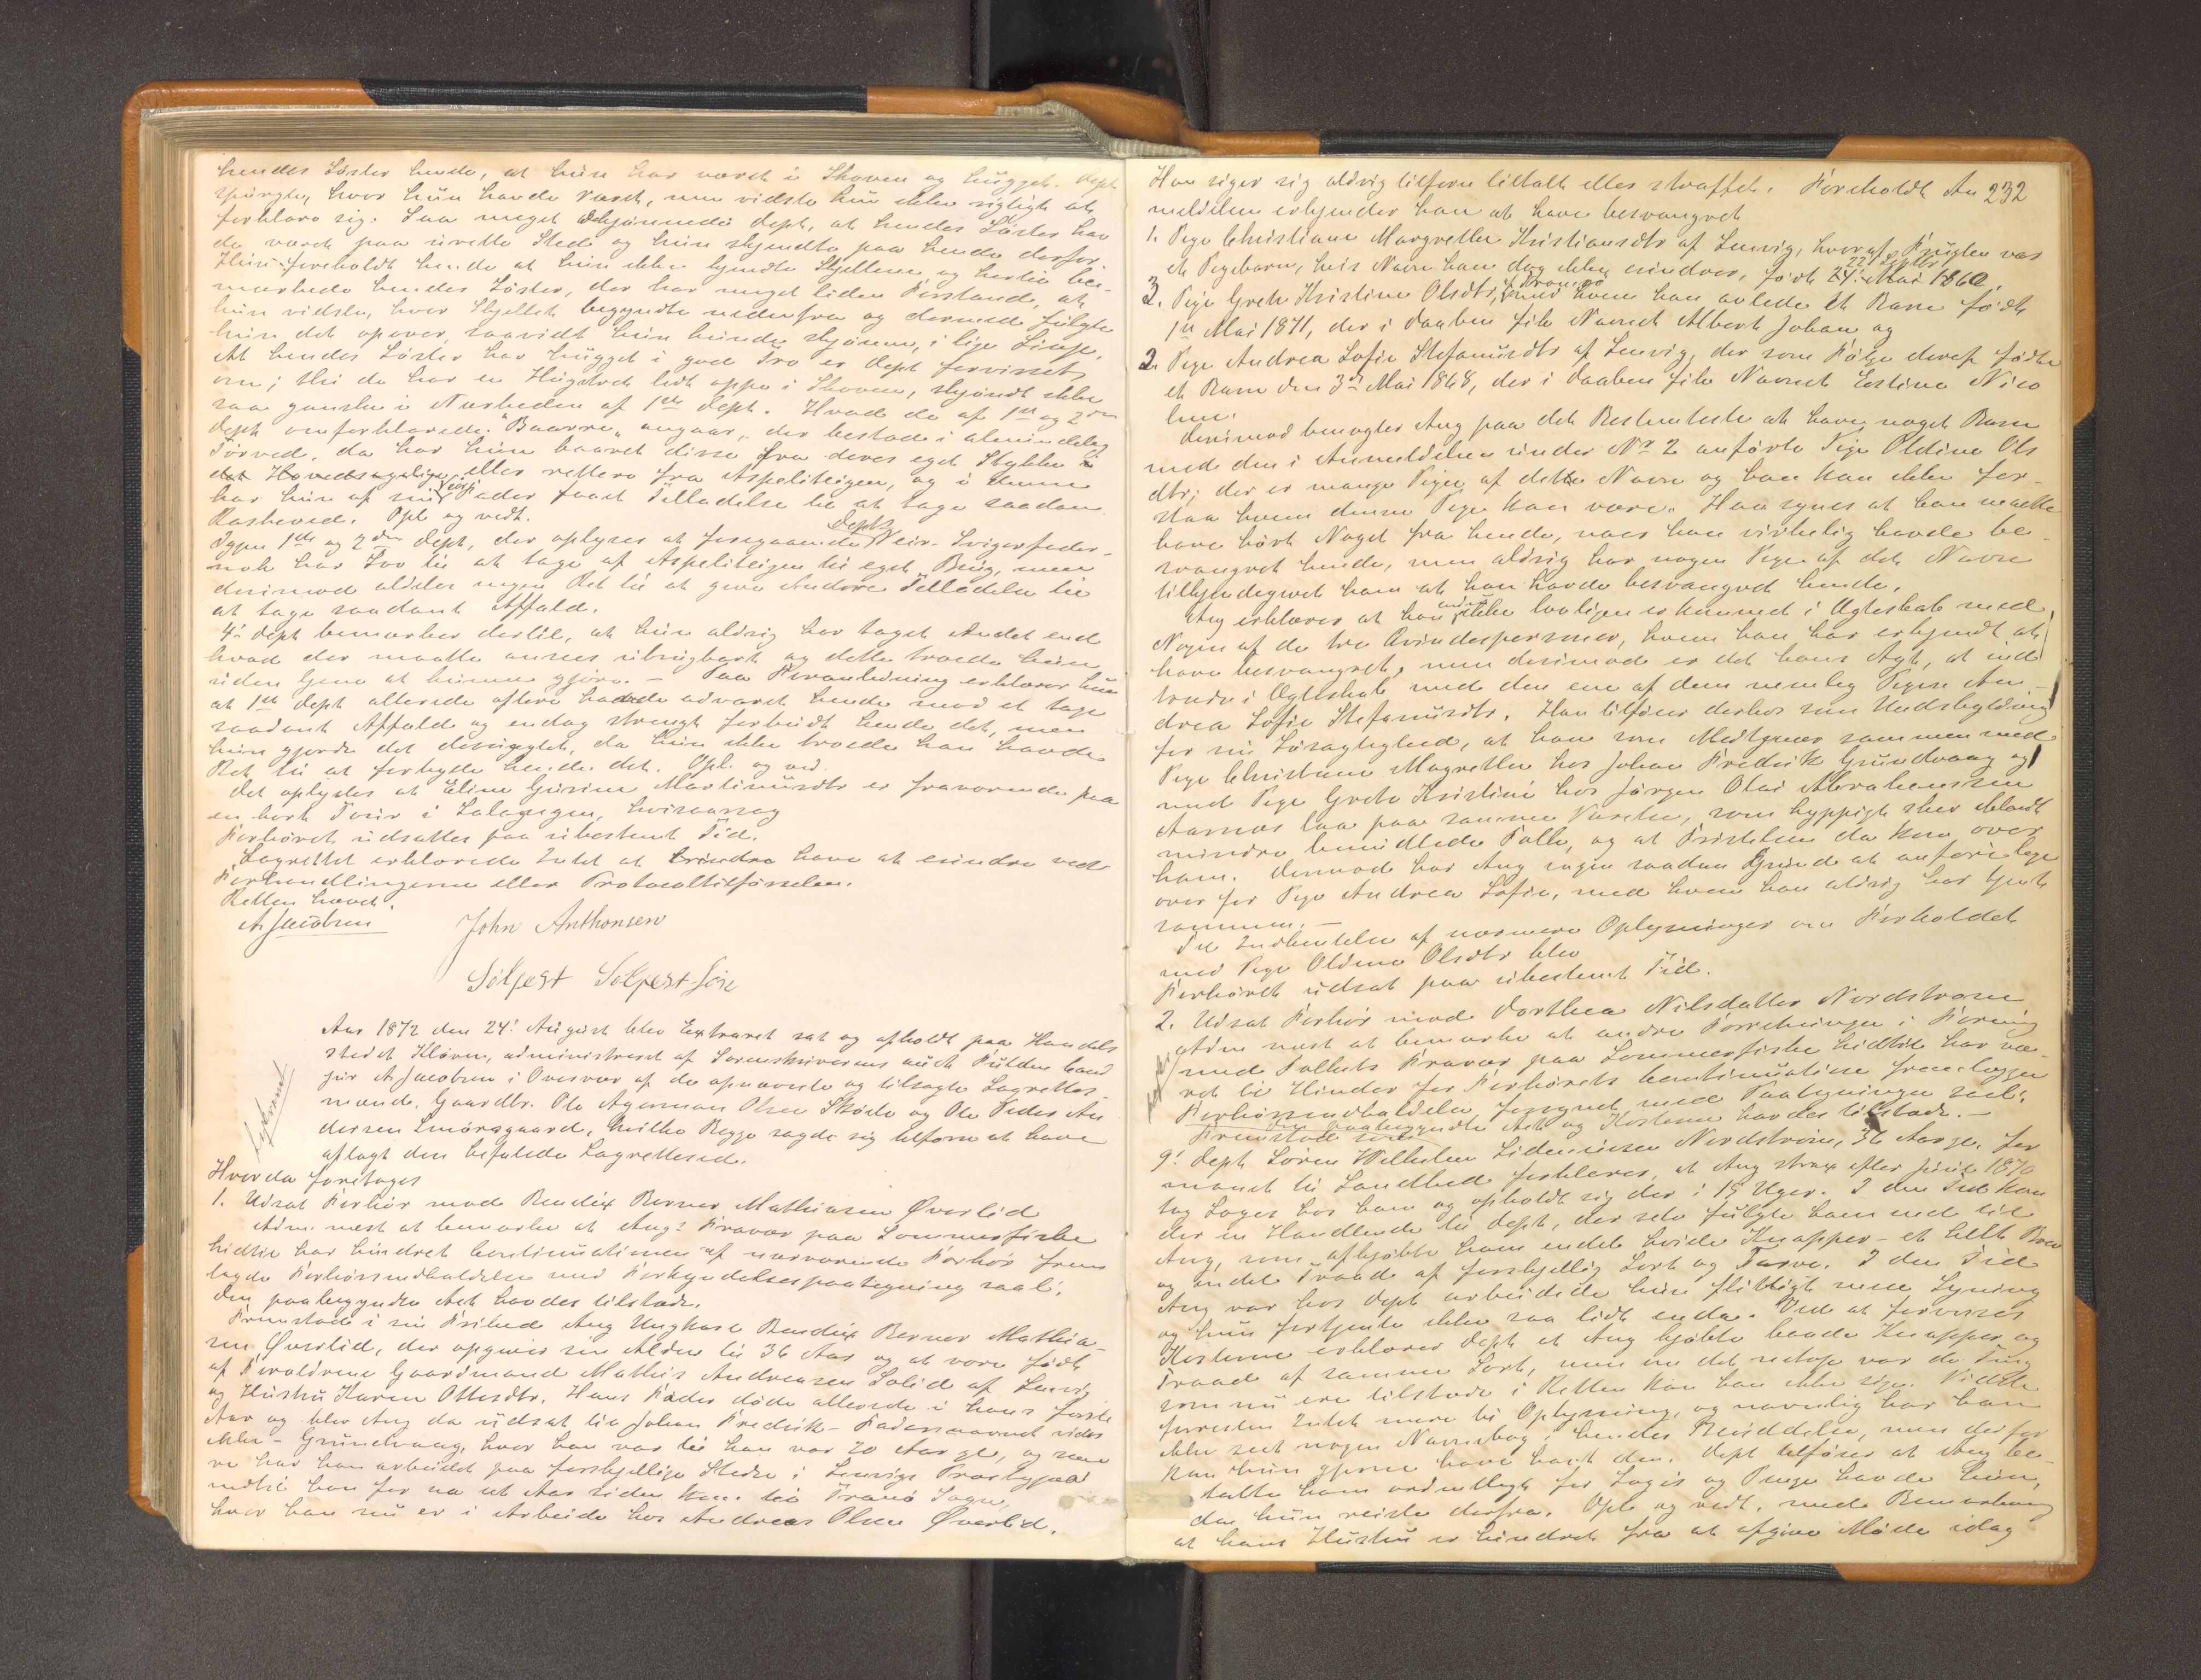 hendes Søster hende, at hun har været i Skoven og hugget. Dept
spurgte, hvor hun havde været, men vidste hun ikke rigtigt at
forklare sig. Saa meget skjønnede Dept, at hendes Søster hav
de været paa urette Sted og hun skjendte paa hende derfor.
Hun foreholdt hende at hun ikke kjendte Skjellene og hertil be-
mærkede hendes Søster, der har meget liden Forstand, at
hun vidste, hvor Skjellet begyndte nedenfra og dermed fulgte
hun det opover, saavidt hun kunde skjønne, i lige Linje.
At hendes Søster har hugget i god Tro er Dept forvisset
om; thi de har en Hugstvet lidt oppe i Skoven, skjøndt ikke
saa ganske i Nærheden af 1ste Dept. Hvad de af 1ste og 2den
Dept omforklarede "Baarre" angaar, der bestod i alminnelig
Tørved, da har hun baaret disse fra deres eget Stykke
eller rettere fra Aspeliteigen, og i denne
har hun af sin Fader faaet Tilladelse til at tage saadan
Kasteved. Opl og vedt.
Igjen 1ste og 2den Dept, der oplyses at foregaaende Depts Svigerfader
nok har Lov til at tage af Aspeliteigen til eget Brug, men
derimod aldeles ingen Ret til at give Andre Tilladelse til
at tage saadant Affald.
4de Dept bemærker dertil, at hun aldrig har taget Andet end
hvad der maatte ansees ubrugbart og dette troede hun
uden Gene at kunne gjøre. – Paa Foranledning erklærer hun
at 1ste Dept allerede oftere havde advaret hende mod at tage
saadant Affald og endog strengt forbudt hende det, men
hun gjorde det desuagtet, da hun ikke troede han havde
Ret til at forbyde hende det. Opl. og ved.
Det oplystes at Eline Gurine Martinusdtr er fraværende paa
en kort Tour i Salangen, hvisaarsag
Forhøret udsattes paa ubestemt Tid.
Lagrettet erklærede Intet at have at erindre ved
Forhandlingerne eller Protocoltilførselen.
Retten hævet.
A Jacobsen John Anthonsen
Solfest Solfest-søn
Aar 1872 den 24' August blev Extraret sat og afholdt paa Handels
stedet Kløven, administreret af Sorenskriverens aut. Fuldm. Cand
jur A Jacobsen i Overvær af de opnævnte og tilsagte Lagrettes-
mænd, Gaardbr. Ole Agerman Olsen Skøde og Ole Peder An
dersen Smørsgaard, hvilke Begge sagde sig tilforn at have
aflagt den befalede Lagrettesed.
Hvorda foretoges
1. Udsat Forhør mod Bendix Berner Mathiasen Øverlid
Adm. næst at bemærke at Angs Fravær paa Sommerfiske
hidtil har hindret Continuationen af nærværende Forhør frem
lagde Forhørsindkaldelse med Forkyndelsespaategning saal.
Den paabegyndte Act havdes tilstede.
Fremstod i sin Frihed Ang Ungkarl Bendix Berner Mathia-
sen Øverlid, der opgiver sin Alder til 36 Aar og at være født
af Forældrene Gaardmand Mathis Andreasen Solid af Lenvig
og Hustru Karen Ottesdtr. Hans Fader døde allerede i hans første
Aar og blev Ang da udsat til Johan Fredrik – Fadersnavnet vides
ikke – Grundvaag, hvor han var til han var 20 Aar gl, og sene
re har han arbeidet paa forskjellige Steder i Lenvigs Præstegjæld
indtil han for na et Aar siden kom til Tranø Sogn,
hvor han nu er i Arbeide hos Andreas Olsen Øverlid.
232
Han siger sig aldrig tilforn tiltalt eller straffet. Foreholdt An
meldelsen erkjender han at have besvangret
1. Pige Christiane Margrethe Kristiansdtr af Lenvig, hvoraf Frugten var
et Pigebarn, hvis Navn han dog ikke erindrer, født 22' Septbr 1860.
3. Pige Grete Kristine Olsdtr, med hvem han avlede et Barn født
1ste Mai 1871, der i Daaben fik Navnet Albert Johan og
2. Pige Andrea Sofie Stefanusdtr af Lenvig, der som Følge deraf fødte
et Barn den 3die Mai 1868, der i Daaben fik Navnet Estine Nico
line.
Derimod benegter Ang paa det Bestemteste at have noget Barn
med den i Anmeldelsen under No 2 anførte Pige Oldine Ols
dtr; der er mange Piger af dette Navn og han kan ikke for-
staa hvem denne Pige kan være. Han synes at han maatte
have hørt Noget fra hende, naar han virkelig havde be-
svangret hende, men aldrig har nogen Pige af det Navn
tilkjendegivet ham at han havde besvangret hende.
Ang erklærer at han ikke lovligen er kommet i Ægteskab med
Nogen af de tre Qvindespersoner, hvem han har erkjendt at
have besvangret, men derimod er det hans Agt, at ind
træde i Ægteskab med den ene af dem nemlig Pigen An-
drea Sofie Stefanusdtr. Han tilføier derhos som Undskyldning
for sin Løsagtighed, at han som Medtjener sammen med
Pige Christiane Magrethe hos Johan Fredrik Grundvaag og
med Pige Grete Kristine hos Jørgen Olai Abrahamssen
Aarnæs laa paa samme Værelse, som hyppigt sker iblandt
mindre bemidlede Folk, og at Fristelsen da kom over
ham. Dermod har Ang ingen saadan Grund at anføre lige
over for Pige Andrea Sofie, med hvem han aldrig har tjent
sammen. –
Til Indhentelse af nærmere Oplysninger om Forholdet
med Pige Oldine Olsdtr blev
Forhøret udsat paa ubestemt Tid.
2. Udsat Forhør mod Dorthea Nilsdatter Nordstrøm
Adm næst at bemærke at andre Forretninger i Forening
med Folkets Fravær paa Sommerfiske hidtil har væ-
ret til Hinder for Forhørets Continuation fremlægger
Forhørsindkaldelse, forsynet med Paategninger saal.
Den paabegyndte Act og Kosterne havdes tilstede. –
Fremstod som
9' Dept Søren Wilhelm Sideniusen Nordstrøm, 36 Aar gl. for
manet til Sandhed forklares, at Ang strax efter Juul 1870
tog Logis hos ham og opholdt sig der i 15 Uger. I den Tid kom
der en Handlende til Dept, der selv fulgte ham ned til
Ang, som afkjøbte ham endel hvide Knapper – et helt Brev
og endel Traad af forskjellig Sort og Farve. I den Tid
Ang var hos Dept arbeidede hun flittigt med Syning
og hun fortjente ikke saa lidt enda. Ved at forevises
Kosterne erklærer Dept at Ang kjøbte baade Knapper og
Traad af samme Sort, men om det netop var de Ting
som nu ere tilstede i Retten kan han ikke sige. Vidste
forresten Intet mere til Oplysning, og navnlig har han
ikke seet nogen Navnebog i hendes Besiddelse, men derfor
kan hun gjerne have havt den. Dept tilføier at Ang be-
talte ham ordentligt for Logis og Penge havde hun,
da hun reiste derfra. Opl og vedt. med Bemærkning
at hans Hustru er hindret fra at afgive Møde idag